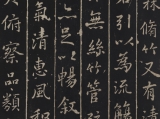 林脩竹又有清
右引以為流觴
無絲竹管
亦足以暢敘
氣清惠風和
俯察品類